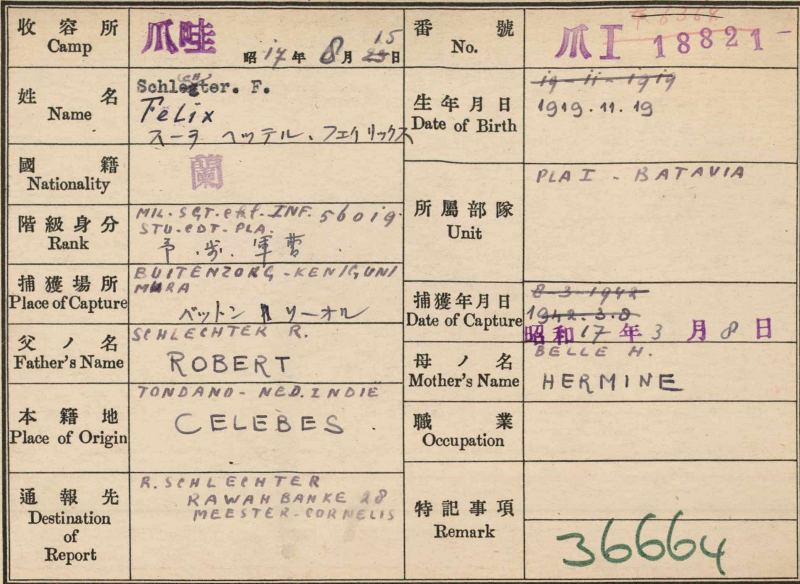 收容所
Camp
爪哇
昭17年8月15日
番號
No.
爪I 18821-
姓名
Name
Schlechter. F.
Felix
生年月日
Date of Birth
19-11-1919
1919.11.19
國籍
Nationality
蘭
所屬部隊
Unit
PLA I - BATAVIA
階級身分
Rank
MIL. SGT. INF. 56019.
STU. CDT. PLA.
軍曹
捕獲場所
Place of Capture
BUITENZORG-
MURA
捕獲年月日
Date of Capture
8-3-1942
1942.3.8
昭和17年3月8日
父ノ名
Father's Name
SCHLECHTER R.
ROBERT
母ノ名
Mother's Name
BELLE H.
HERMINE
本籍地
Place of Origin
TONDANO-NED. INDIË
CELEBES
職業
Occupation
通報先
Destination
of
Report
R. SCHLECHTER
RAWAH BANKE 28
MEESTER-CORNELIS
特記事項
Remark
36664